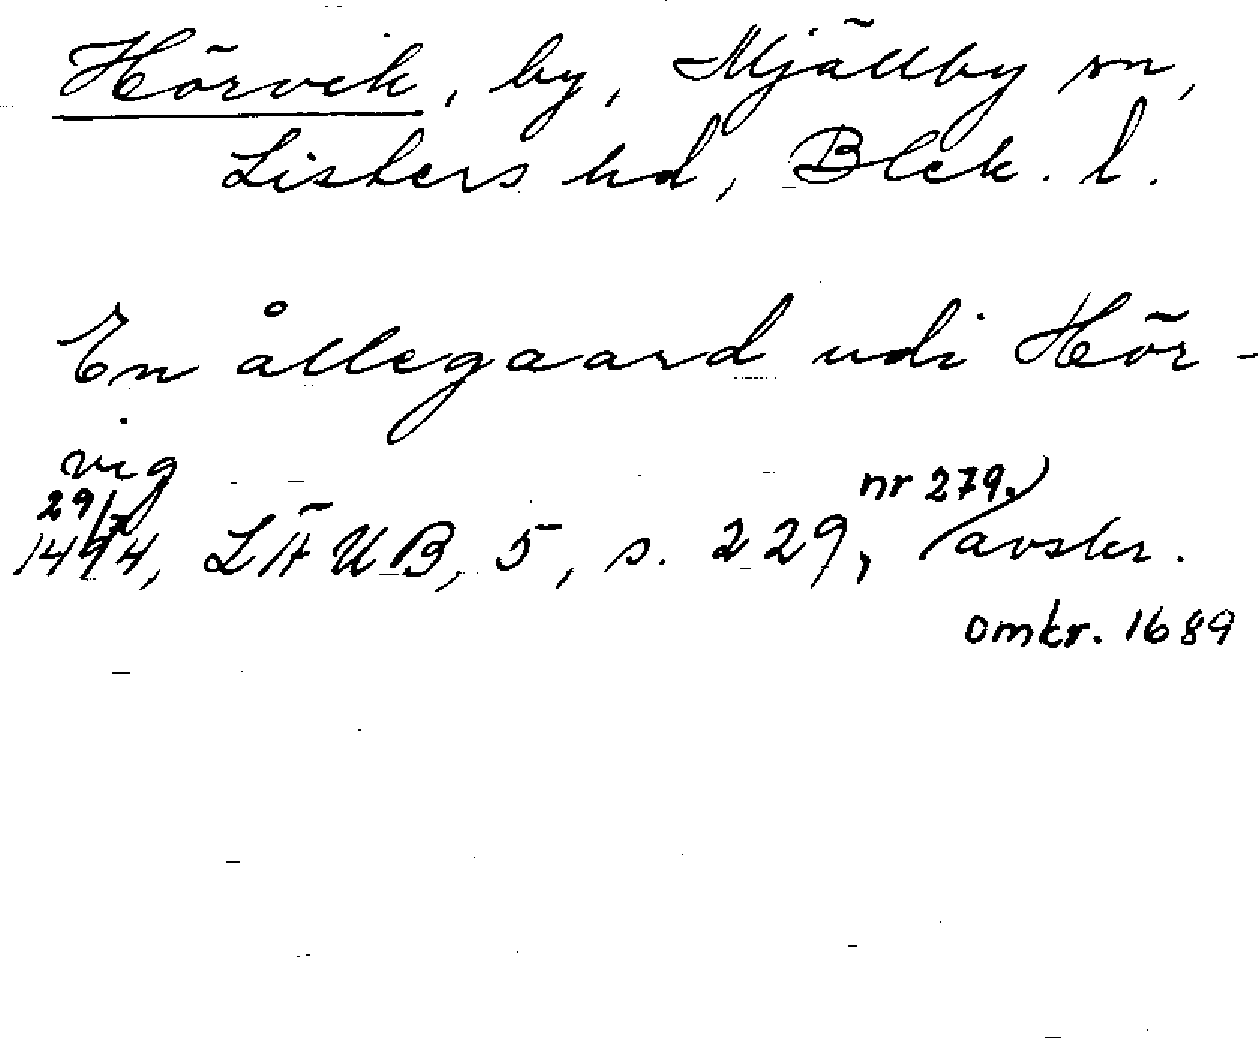 Hörvik, by, Mjällby sn,
Listers hd, Blek. l.
En ållegaard udi Hör-
vig
29/7 nr 279,
1494, LÄUB, 5, s. 229, avskr.
omkr. 1689